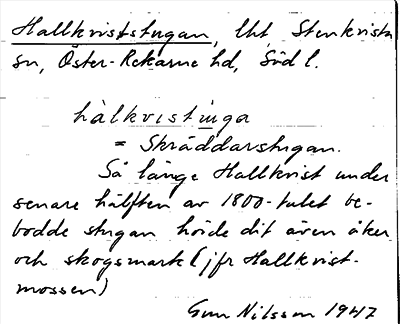 Hallkviststugan, lht Stenkvista
sn, Öster-Rekarne hd, Söd l.
hàlkvistùga
= Skräddarstugan.
Så länge Hallkvist under
senare hälften av 1800-talet be-
bodde stugan hörde dit även åker
och skogsmark (jfr Hallkvist-
mossen)
Gun Nilsson 1947